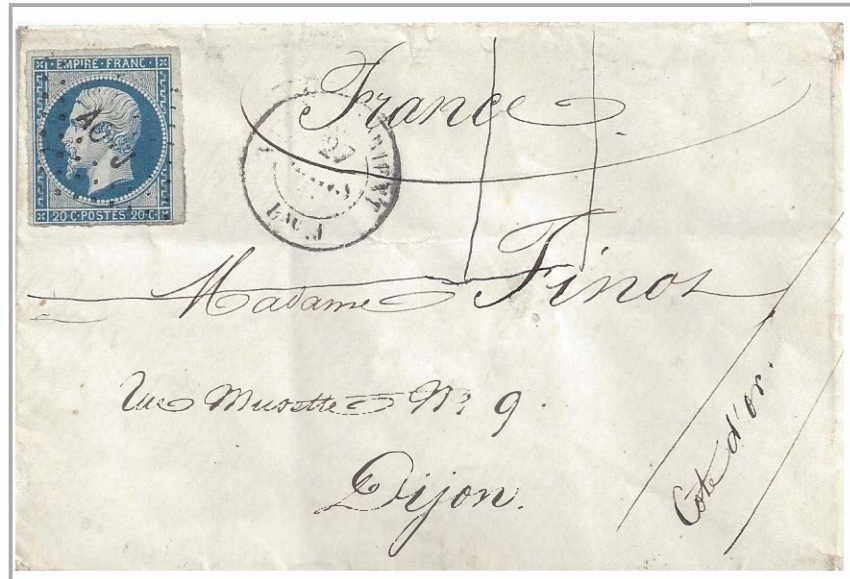 EMPIRE · FRANC ·
20 C · POSTES · 20 C
France
27
Madame Finot
Rue Musette N° 9.
Dijon.
Côte d'or.